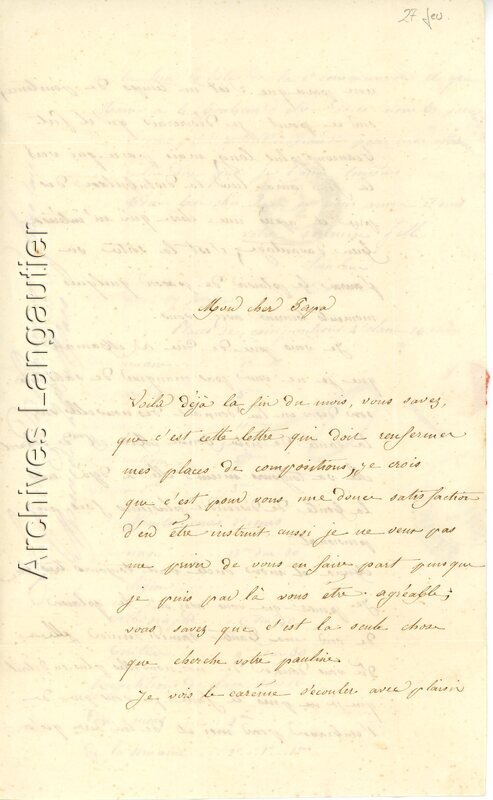 27 fev.
Archives Langautier
Mon cher Papa
Voilà déjà la fin du mois, vous savez,
que c'est cette lettre qui doit renfermer
mes places de compositions, je crois
que c'est pour vous une douce satisfaction
d'en être instruit aussi je ne veux pas
me priver de vous en faire part puisque
je puis par là vous être agréable;
vous savez que c'est la seule chose
que cherche votre pauline
Je vois le carême s'écouler avec plaisir